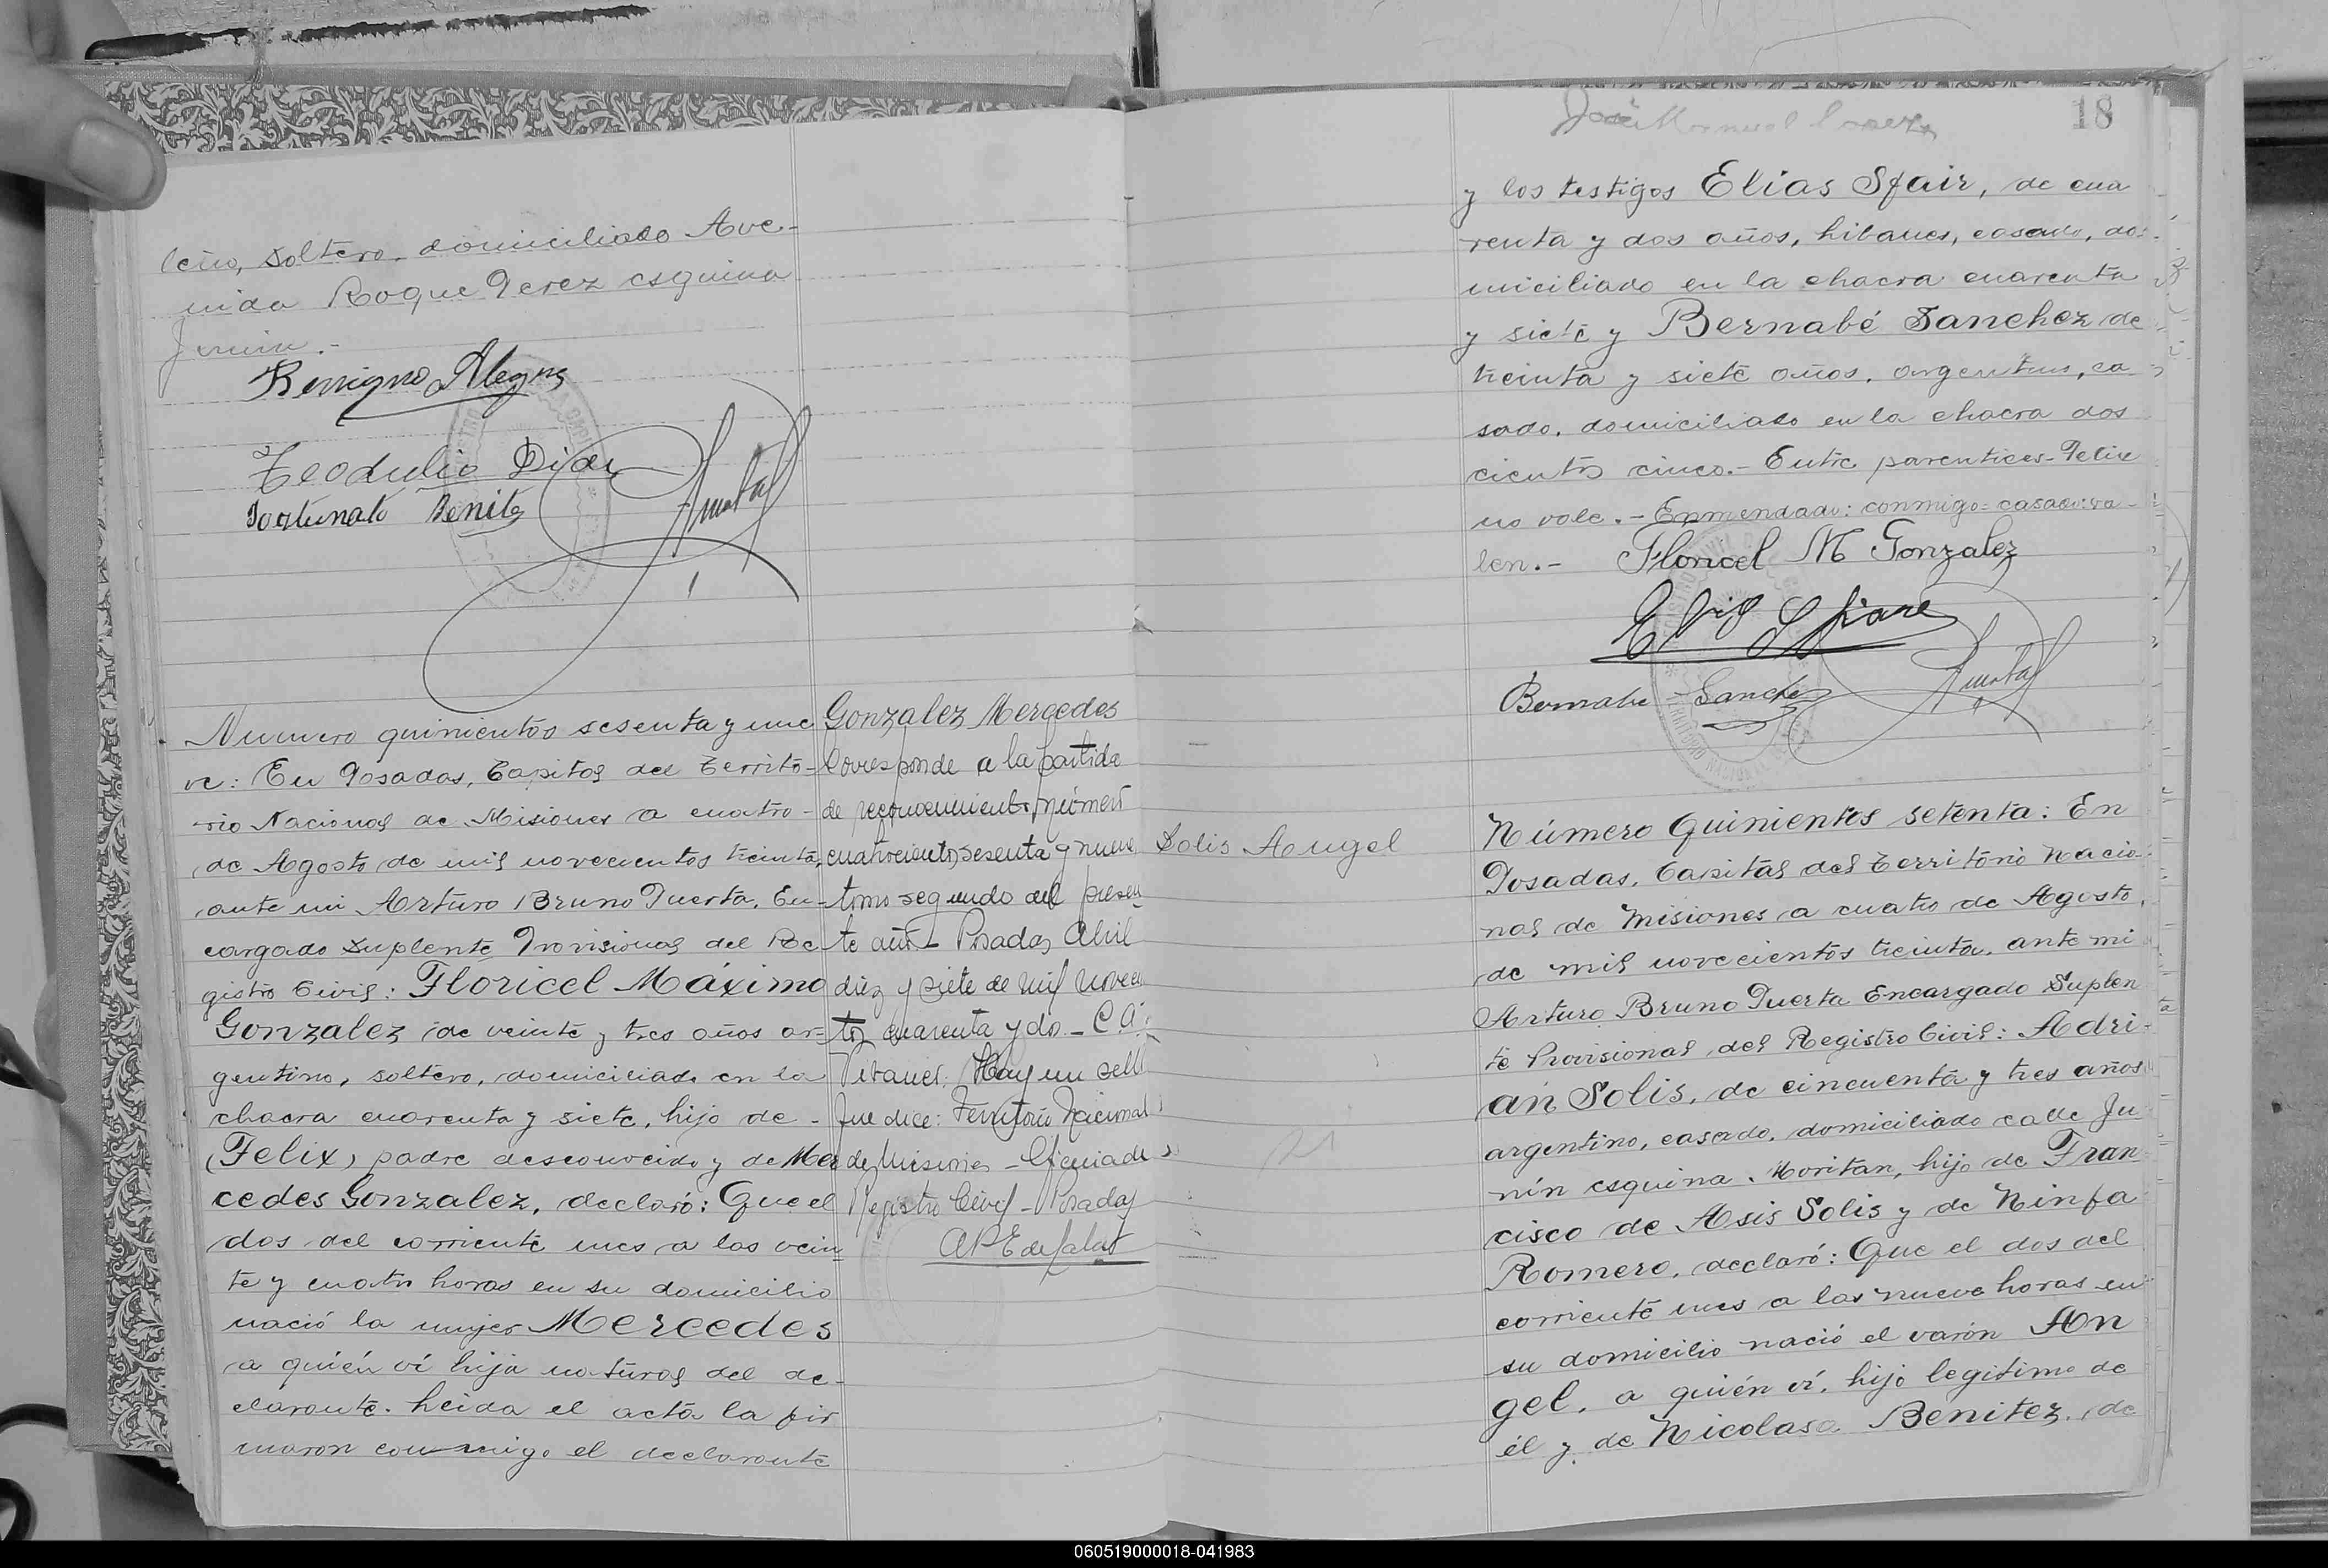 leño, soltero, domiciliado Ave-
nida Roque Perez esquina
Junin.-
Benigno Alegre
Teodulio Diaz
Fortunato Benitez
Numero quinientos sesenta y nue
ve: En Posadas, Capital del Territo-
rio Nacional de Misiones a cuatro-
de Agosto de mil novecientos treinta,
ante mi Arturo Bruno Puerta, En-
cargado Suplente Provisional del Re-
gistro Civil: Floricel Máximo
Gonzalez de veinte y tres años ar-
gentino, soltero, domiciliado en la
chacra cuarenta y siete, hijo de -
(Felix) padre desconocido y de Mer
cedes Gonzalez, declaró: Que el
dos del corriente mes a las vein
te y cuatro horas en su domicilio
nació la mujer Mercedes
a quién ví hija natural del de-
clarante. Leida el acta la fir
maron conmigo el declarante
Gonzalez Mercedes
Corresponde a la partida
de reconocimiento número
cuatrocientos sesenta y nueve
tomo segundo del presen
te año - Posadas Abril
diez y siete de mil novecien
tos cuarenta y dos - C.A.
Hay un sello
que dice: Territorio Nacional
de Misiones - Oficina de
Registro Civil - Posadas
18
José Manuel Lopez
y los testigos Elias Sfair, de cua
renta y dos años, libanes, casado, do-
miciliado en la chacra cuarenta
y siete y Bernabé Sanchez de
treinta y siete años, argentino, ca
sado, domiciliado en la chacra dos
cientos cinco.- Entre parentices-Felix
no vale.- Enmendado: conmigo=casado: va-
len.- Floricel M Gonzalez
Elias Sfiare
Bernabe Sanchez
Solis Angel
Número Quinientos setenta: En
Posadas, Capital del Territorio Nacio-
nal de Misiones a cuatro de Agosto,
de mil novecientos treinta, ante mi
Arturo Bruno Puerta Encargado Suplen
te Provisional del Registro Civil: Adri-
án Solis, de cincuenta y tres años
argentino, casado, domiciliado calle Ju
nín esquina Moritan, hijo de Fran
cisco de Asis Solis y de Ninfa
Romero, declaró: Que el dos del
corriente mes a las nueve horas en
su domicilio nació el varón An
gel, a quién ví, hijo legitimo de
él y de Nicolasa Benitez, de
060519000018-041983